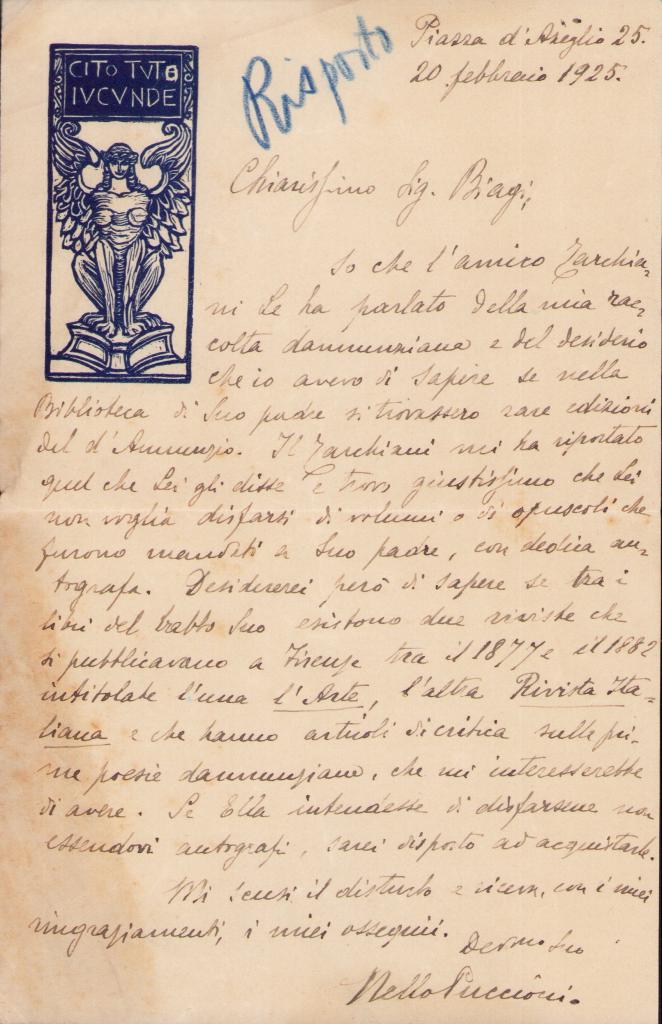 Piazza d'Azeglio 25.
20 febbraio 1925.
Risposto
CITO TVTO
IVCVNDE
Chiarissimo Sig. Biagi,
So che l'amico Tarchia-
ni Le ha parlato della mia rac-
colta dannunziana e del desiderio
che io avevo di sapere se nella
Biblioteca di Suo padre si trovassero rare edizioni
del d'Annunzio. Il Tarchiani mi ha riportato
quel che Lei gli disse e trovo giustissimo che Lei
non voglia disfarsi di volumi o di opuscoli che
furono mandati a Suo padre, con dedica au-
tografa. Desidererei però di sapere se tra i
libri del babbo Suo esistono due riviste che
si pubblicavano a Firenze tra il 1877 e il 1882
intitolate l'una l'Arte, l'altra Rivista Ita-
liana e che hanno articoli di critica sulle pri-
me poesie dannunziane, che mi interesserebbe
di avere. Se Ella intendesse di disfarsene non
essendovi autografi, sarei disposto ad acquistarle.
Mi scusi il disturbo e riceva, con i miei
ringraziamenti, i miei ossequii.
Devmo Suo
Nello Puccioni.